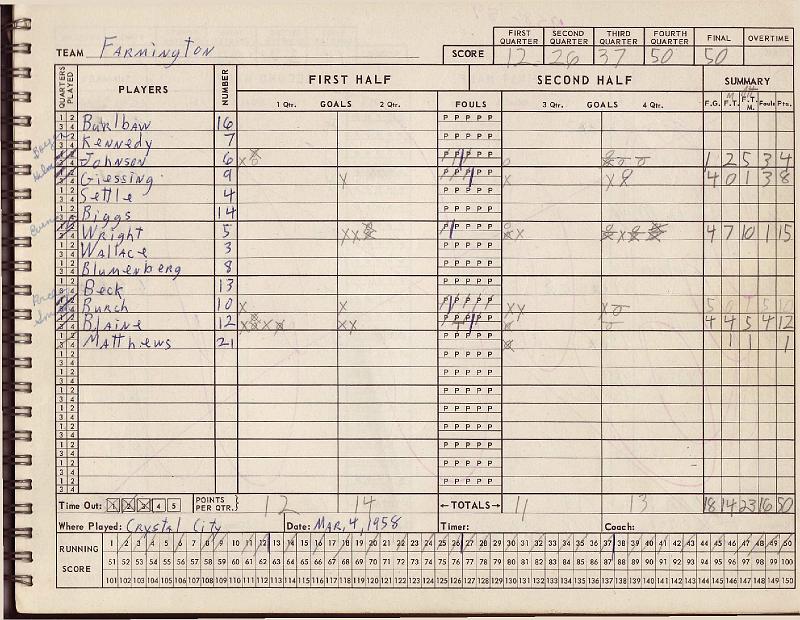 FIRST QUARTER SECOND QUARTER THIRD QUARTER FOURTH QUARTER FINAL OVERTIME
TEAM Farmington SCORE 12 26 37 50 50
QUARTERS PLAYED PLAYERS NUMBER FIRST HALF SECOND HALF SUMMARY
1 Qtr. GOALS 2 Qtr. FOULS 3 Qtr. GOALS 4 Qtr. F.G. F.T. F.T. M. Fouls Pts.
Burlbaw 16
Kennedy 7
Johnson 6 1 2 5 3 4
Giessing 9 4 0 1 3 8
Settle 4
Biggs 14
Wright 5 4 7 10 1 15
Wallace 3
Blumenberg 8
Beck 13
Burch 10 5
Blaine 12 4 4 5 4 12
Matthews 21 1 1 1
Time Out: 1 2 3 4 5 POINTS PER QTR. 12 14 ←TOTALS→ 11 13 18 14 23 16 50
Where Played: Crystal City Date: Mar, 4, 1958 Timer: Coach:
RUNNING SCORE
1 2 3 4 5 6 7 8 9 10 11 12 13 14 15 16 17 18 19 20 21 22 23 24 25 26 27 28 29 30 31 32 33 34 35 36 37 38 39 40 41 42 43 44 45 46 47 48 49 50
51 52 53 54 55 56 57 58 59 60 61 62 63 64 65 66 67 68 69 70 71 72 73 74 75 76 77 78 79 80 81 82 83 84 85 86 87 88 89 90 91 92 93 94 95 96 97 98 99 100
101 102 103 104 105 106 107 108 109 110 111 112 113 114 115 116 117 118 119 120 121 122 123 124 125 126 127 128 129 130 131 132 133 134 135 136 137 138 139 140 141 142 143 144 145 146 147 148 149 150